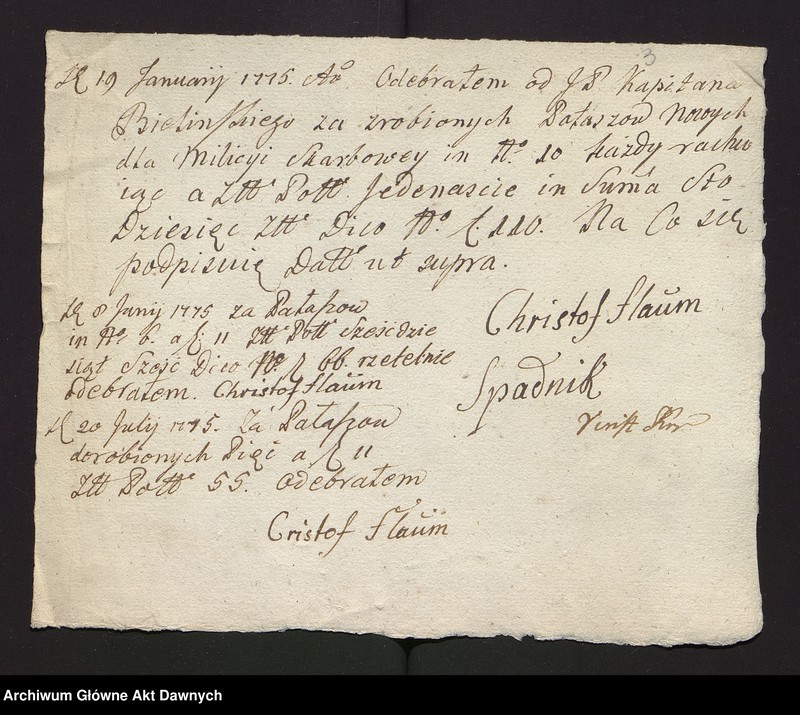 3
19 Januarij 1775. Aō Odebrałem od J P Kapitana
Bielinskiego za zrobionych Pałaszow Nowych
dla Milicyi Skarbowey in No. 10 każdy rachu
iąc a Złł Poll Jedenascie in Suma Sto
Dziesięc Złł Dico No f. 110. Na Co się
podpisuię Datt ut supra.
Christof Flaum
Spadnik
8 Junij 1775 za Pałaszow
in No. 6. a f. 11 Złł Poll Sześćdzie
siąt Sześć Dico No. f 66. rzetelnie
odebrałem. Christof Flaum
20 Julij 1775. Za Pałaszow
dorobionych Pięć a f 11
Złł Poll 55. Odebrałem
Cristof Flaum
Archiwum Główne Akt Dawnych